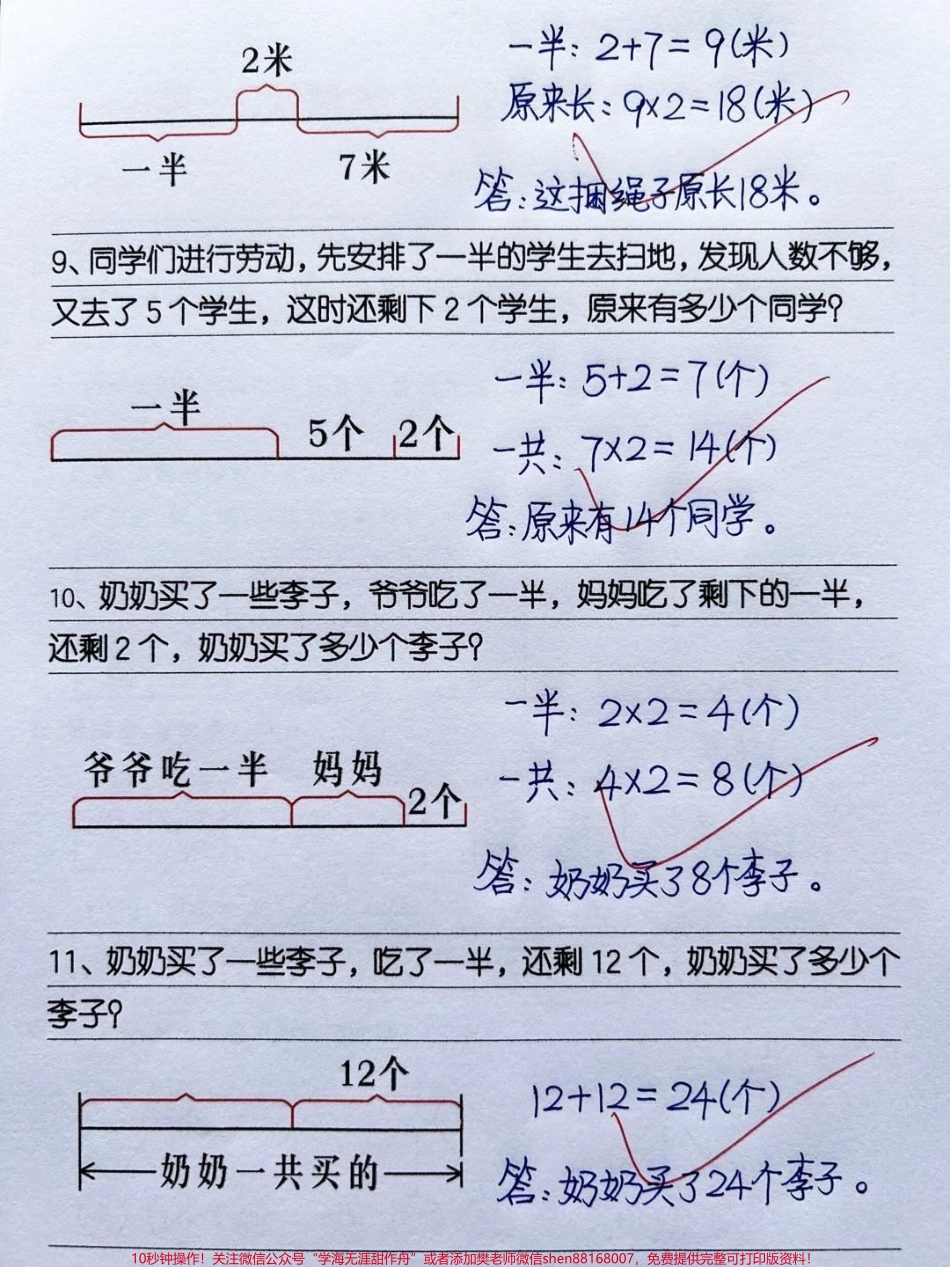 2米
一半
7米
一半：2+7=9(米)
原来长：9×2=18(米)
答：这捆绳子原长18米。
9、同学们进行劳动，先安排了一半的学生去扫地，发现人数不够，
又去了5个学生，这时还剩下2个学生，原来有多少个同学？
一半
5个
2个
一半：5+2=7(个)
一共：7×2=14(个)
答：原来有14个同学。
10、奶奶买了一些李子，爷爷吃了一半，妈妈吃了剩下的一半，
还剩2个，奶奶买了多少个李子？
爷爷吃一半
妈妈
2个
一半：2×2=4(个)
一共：4×2=8(个)
答：奶奶买了8个李子。
11、奶奶买了一些李子，吃了一半，还剩12个，奶奶买了多少个
李子？
12个
奶奶一共买的
12+12=24(个)
答：奶奶买了24个李子。
10秒钟操作！关注微信公众号“学海无涯甜作舟”或者添加樊老师微信shen88168007，免费提供完整可打印版资料！